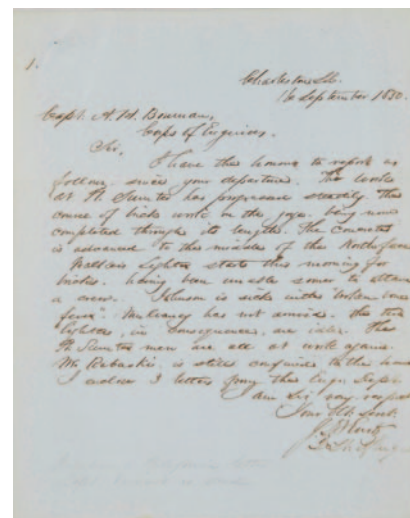 1.
Charleston S.C.
16 September 1850.
Capt. A. H. Bowman,
Corps of Engineers.
Sir,
I have the honour to report as
follows since your departure. The work
at Ft. Sumter has progressed steadily the
course of brick work on the gorge being now
completed through its length. The Concrete
is advanced to the middle of the
Lighter starts this morning for
bricks. having been unable sooner to obtain
a crew. Johnson is sick with "broken bone
fever". has not arrived. the two
lighters, in consequence, are idle. The
Ft. Sumter men are all at work again.
Mr. is still confined to the house
I enclose 3 letters from the Engr. Dept.
am Sir very respect
Your Obt. Servt.